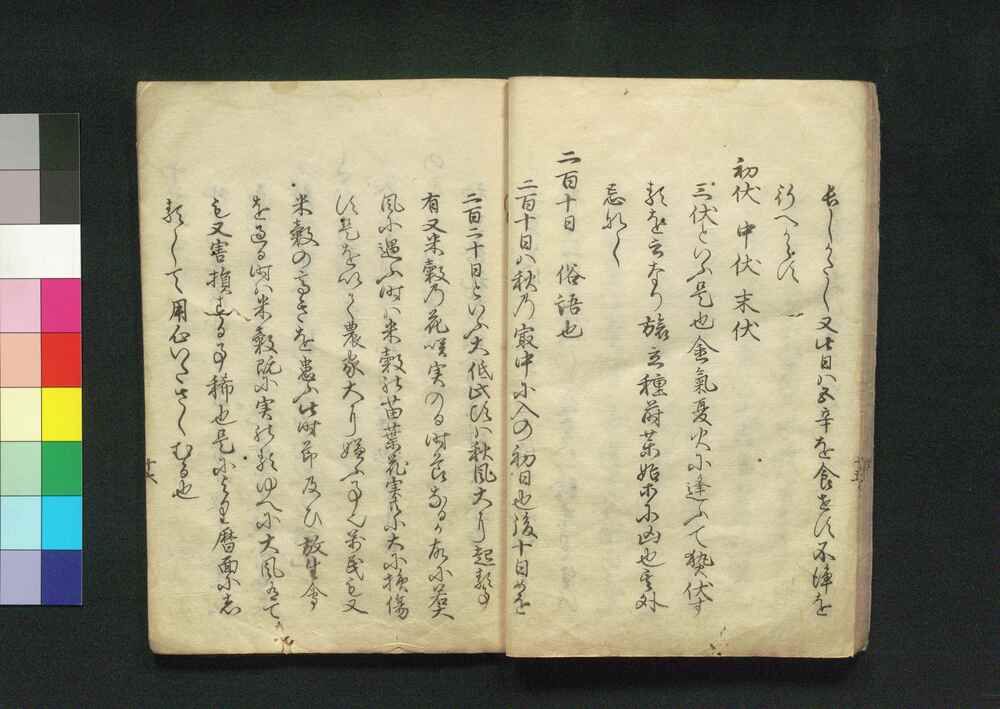 又此日ハ五辛を食せす不浄を
行へからす
初伏 中伏 末伏
三伏といふ是也金氣夏火に逢ふて熱伏す
類を云なり旅立種蒔菜始亦凶也其外
忌なし
二百十日 俗語也
二百十日ハ秋乃最中に入の初日也後十日めを
二百二十日といふ大低此頃ハ秋風大りに起る事
有又米穀乃花咲実のる時節なるか故に若大
風に遇ふ時ハ米穀の苗葉花実ともに大に損傷
す是を以て農家大りに嫌ふ事也万民も又
米穀の高きを患ふ此時節及ひ放生會
を過る時ハ米穀既に実のるゆへに大風有て
も又害損する事稀也是により暦面に志
類して用心いたさしむる也